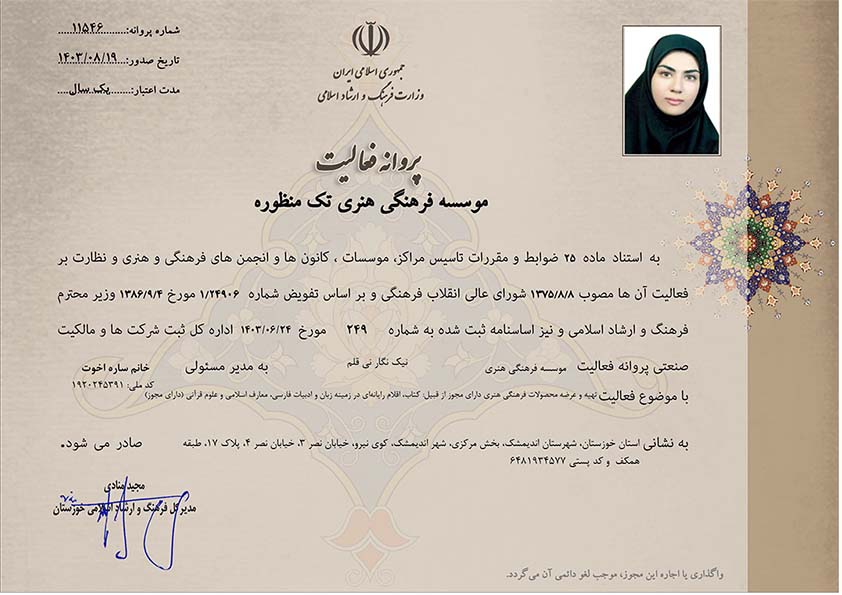 شماره پروانه:........۱۱۵۴۶......
تاریخ صدور:...۱۴۰۳/۰۸/۱۹
مدت اعتبار:........یک سال...
جمهوری اسلامی ایران
وزارت فرهنگ و ارشاد اسلامی
پروانه فعالیت
موسسه فرهنگی هنری تک منظوره
به استناد ماده ۲۵ ضوابط و مقررات تاسیس مراکز، موسسات ، کانون ها و انجمن های فرهنگی و هنری و نظارت بر
فعالیت آن ها مصوب ۱۳۷۵/۸/۸ شورای عالی انقلاب فرهنگی و بر اساس تفویض شماره ۱/۲۴۹۰۶ مورخ ۱۳۸۶/۹/۴ وزیر محترم
فرهنگ و ارشاد اسلامی و نیز اساسنامه ثبت شده به شماره ۲۴۹ مورخ ۱۴۰۳/۰۶/۲۴ اداره کل ثبت شرکت ها و مالکیت
صنعتی پروانه فعالیت موسسه فرهنگی هنری نیک نگار نی قلم به مدیر مسئولی خانم ساره اخوت
کد ملی: ۱۹۲۰۲۴۵۳۹۱
با موضوع فعالیت تهیه و عرضه محصولات فرهنگی هنری دارای مجوز از قبیل: کتاب، اقلام رایانه‌ای در زمینه زبان و ادبیات فارسی، معارف اسلامی و علوم قرآنی (دارای مجوز)
به نشانی استان خوزستان، شهرستان اندیمشک، بخش مرکزی، شهر اندیمشک، کوی نیرو، خیابان نصر ۳، خیابان نصر ۴، پلاک ۱۷، طبقه صادر می شود.
همکف و کد پستی ۶۴۸۱۹۳۴۵۷۷
مجید منادی
مدیر کل فرهنگ و ارشاد اسلامی خوزستان
واگذاری یا اجاره این مجوز، موجب لغو دائمی آن می‌گردد.